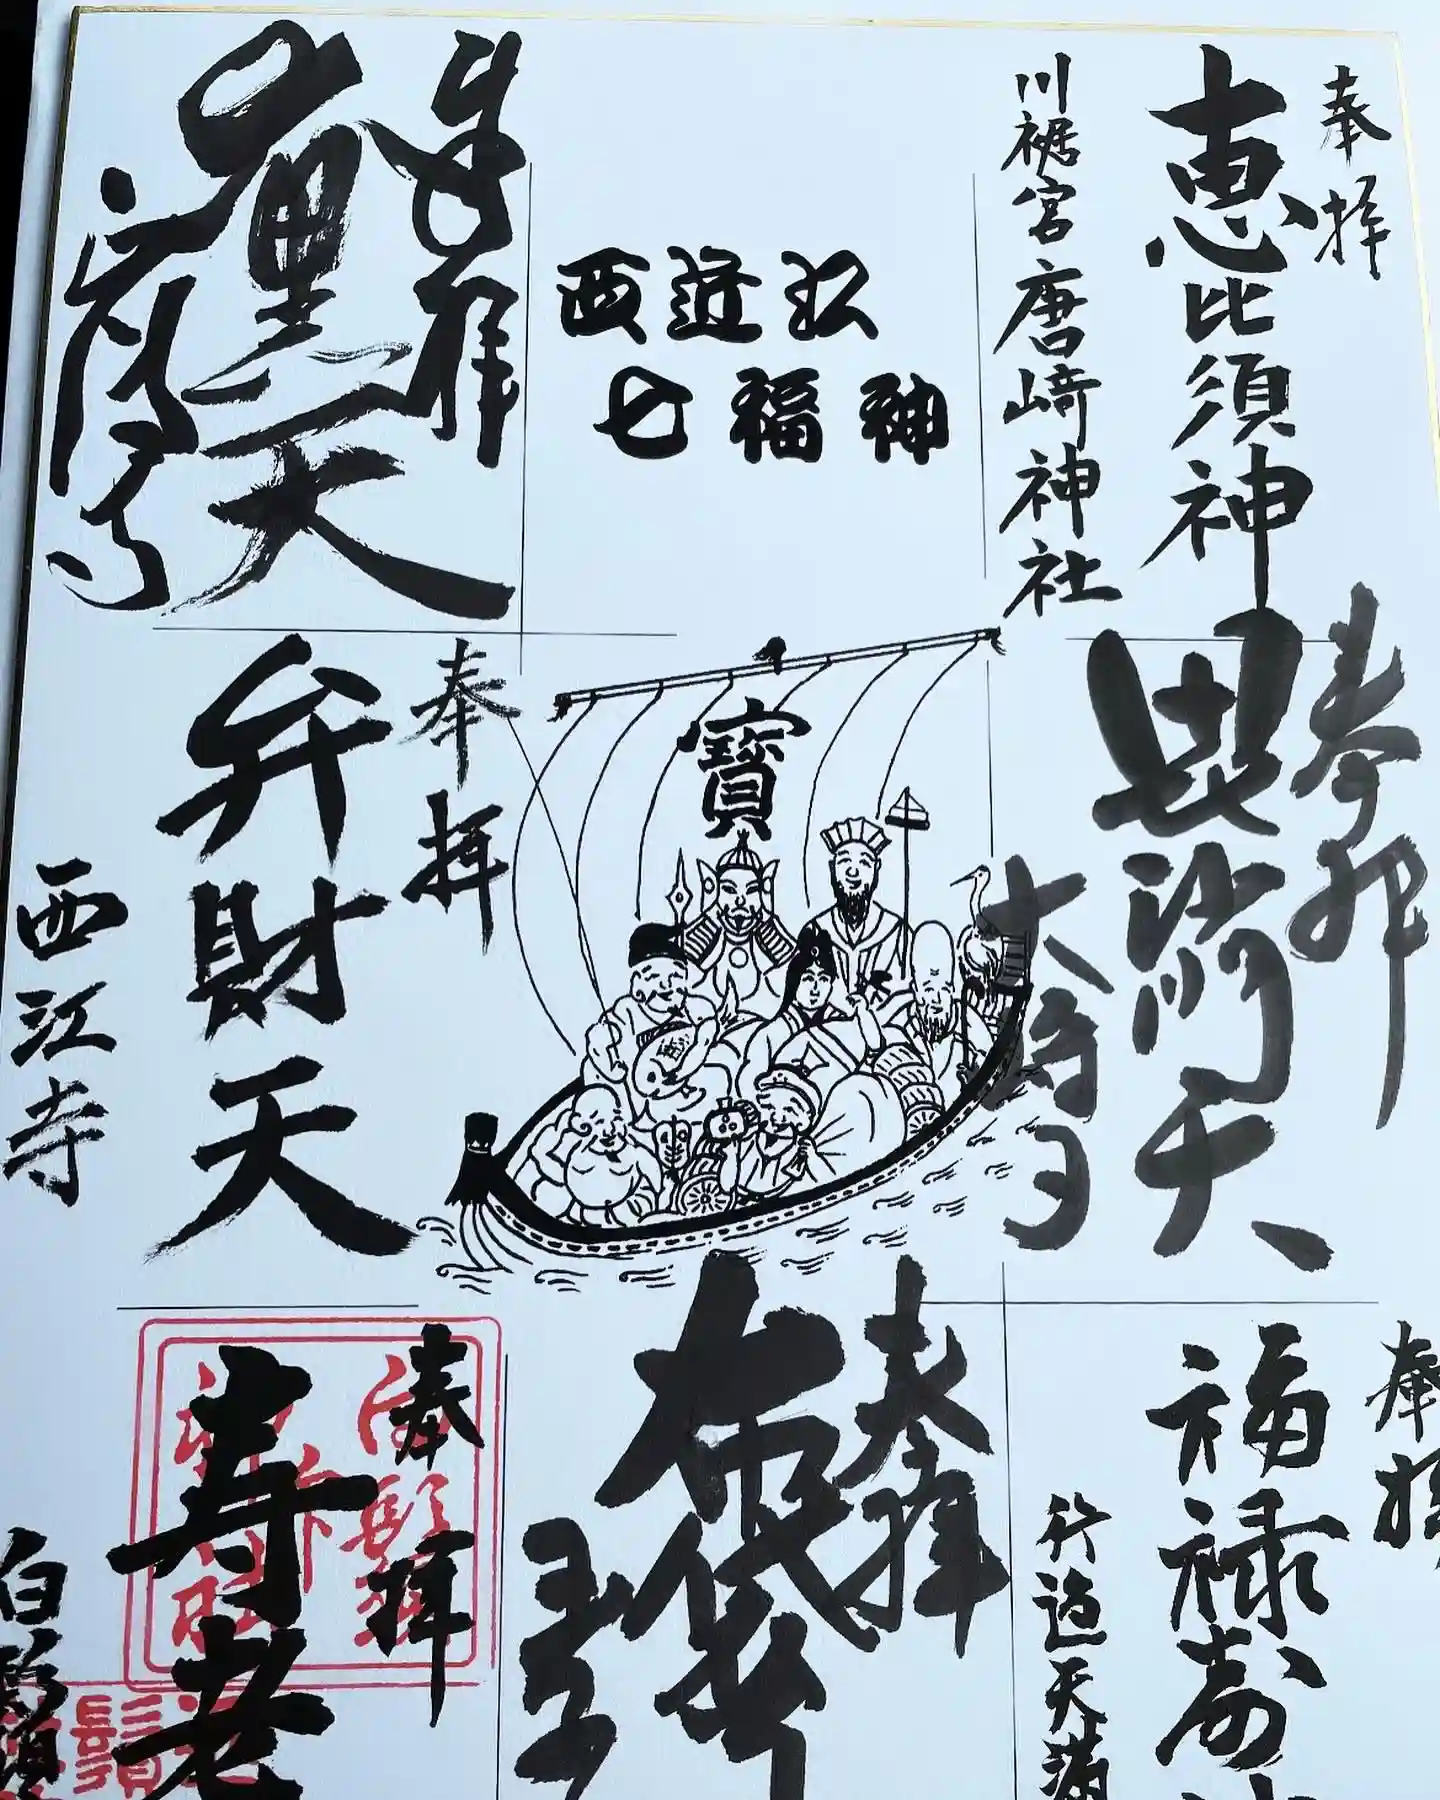 奉拝
恵比須神
川裾宮唐崎神社
西近江
七福神
奉拝
大黒天
奉拝
毘沙門天
大崎寺
寶
奉拝
弁財天
西江寺
奉拝
福禄寿
行過天満
奉拝
布袋
奉拝
寿老
白鬚